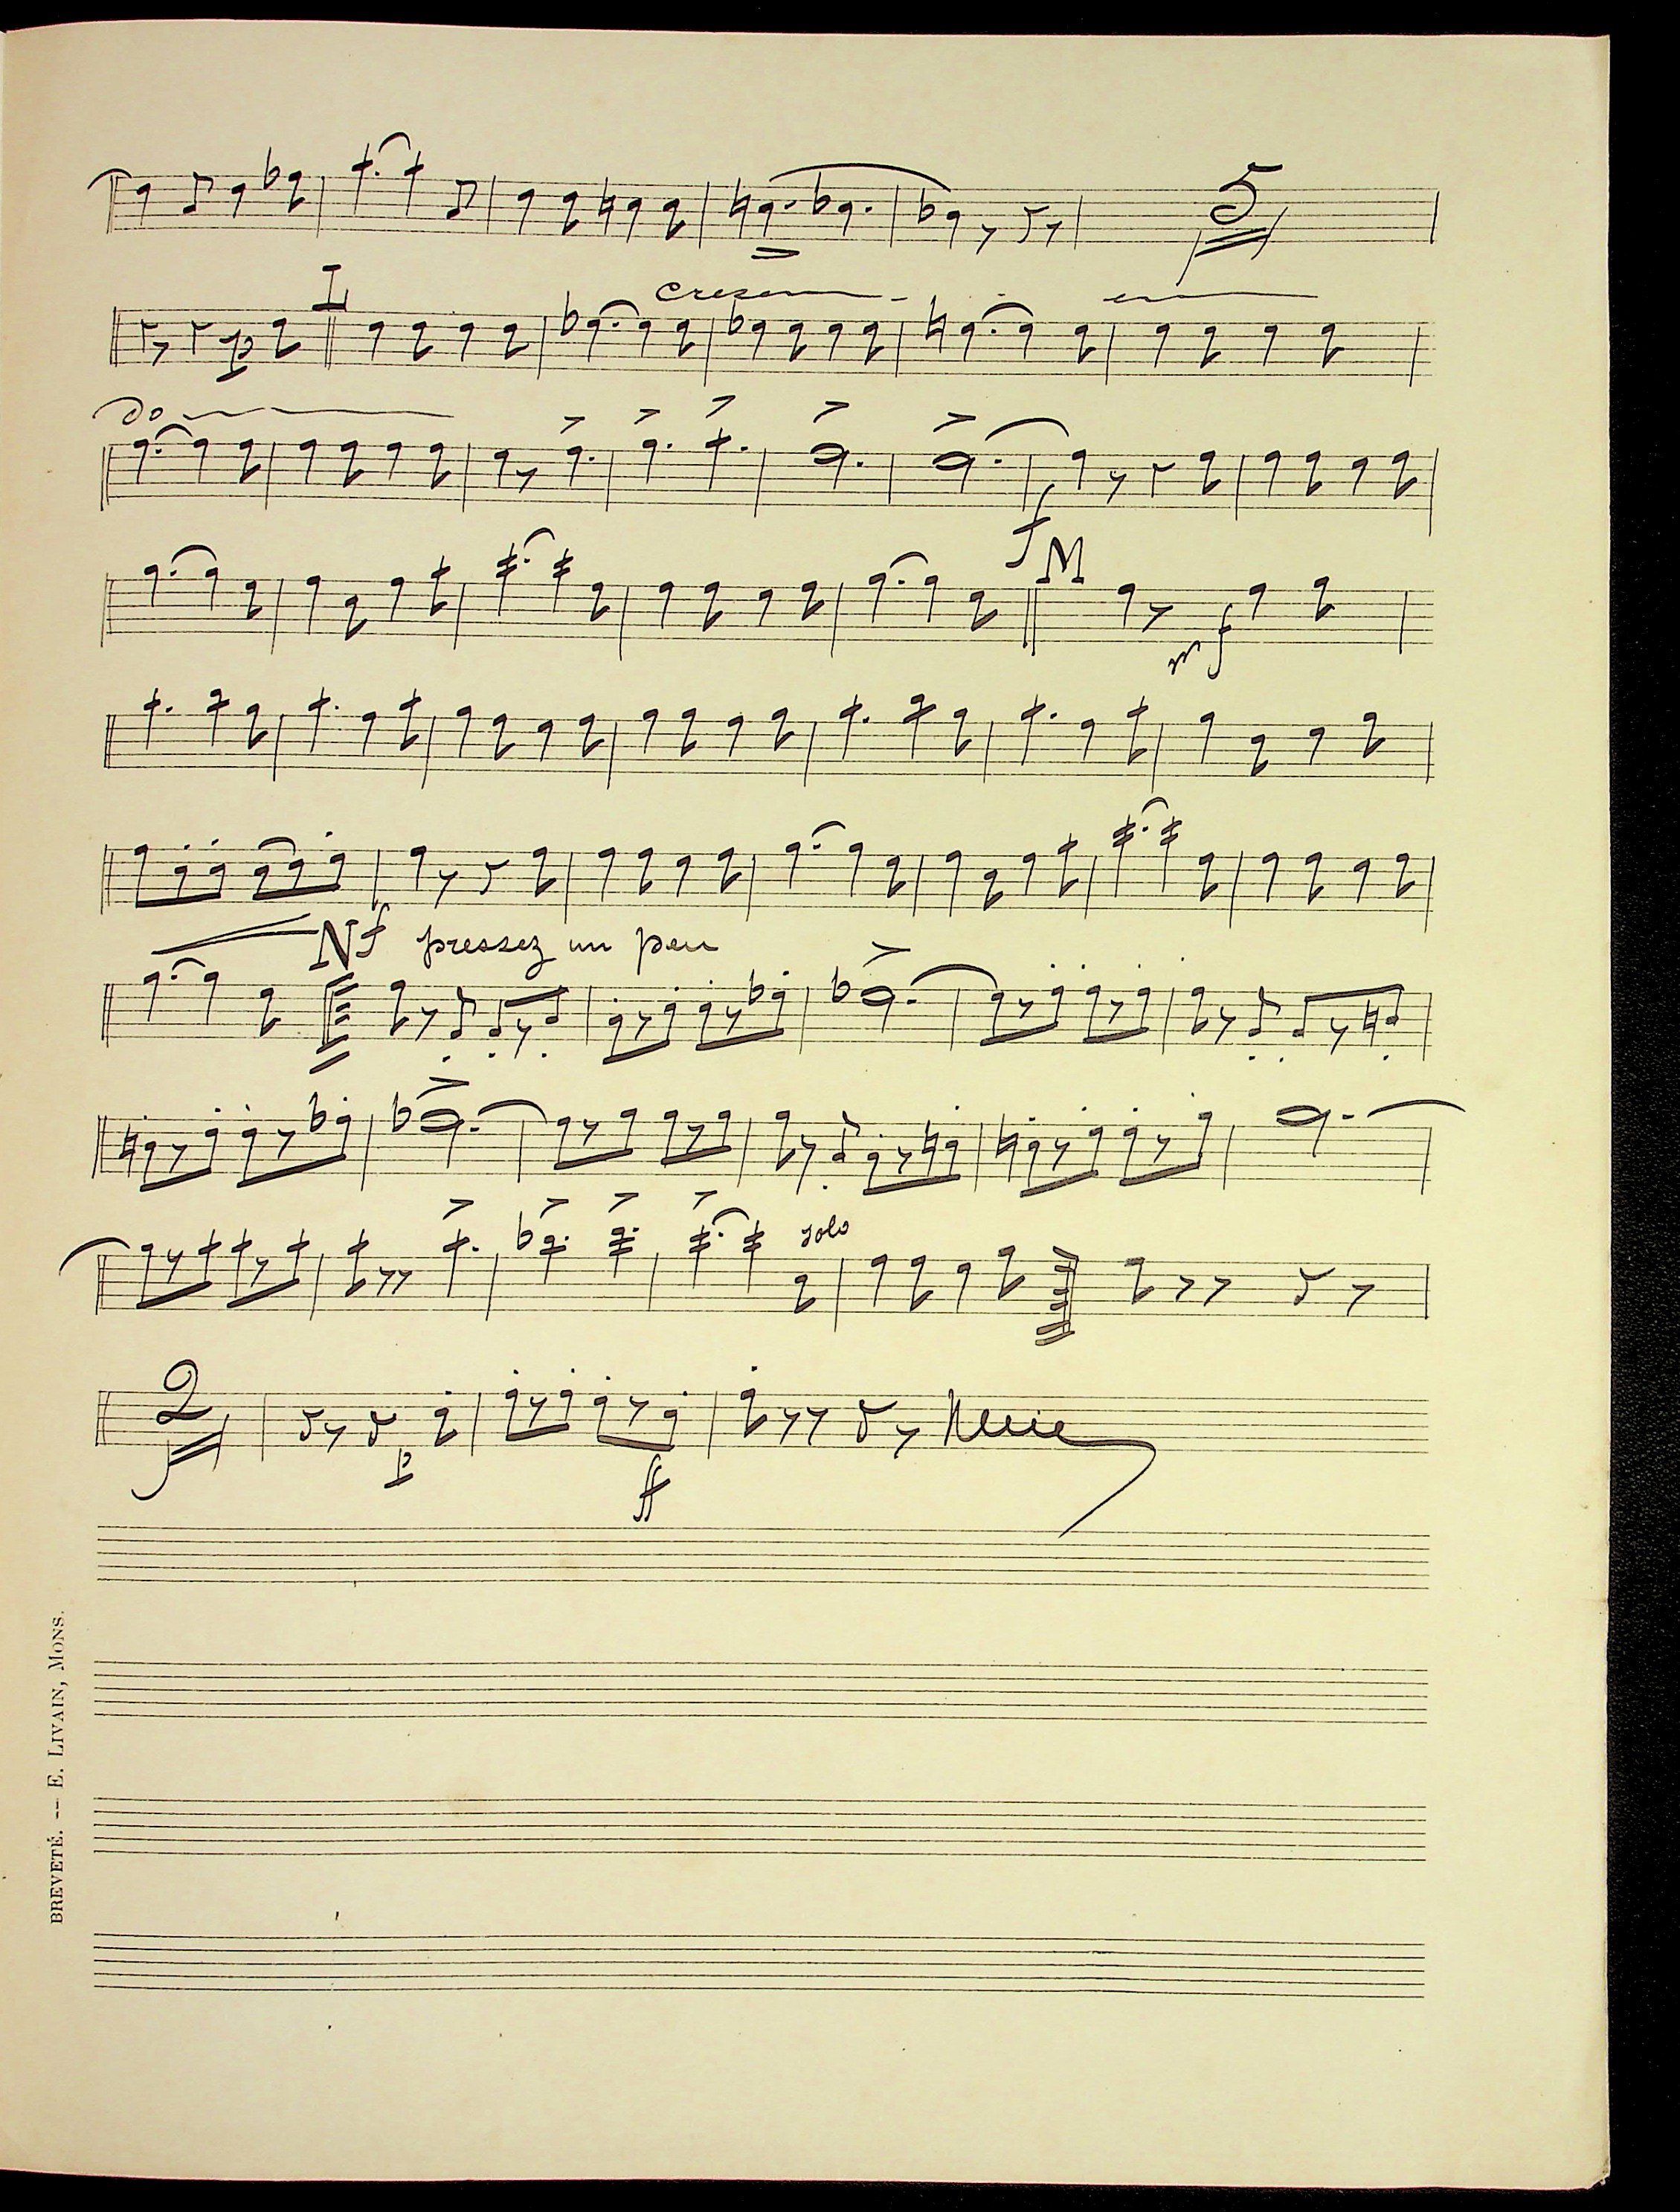 5
L
cresen - en
p
do
f
M
mf
N f pressez un peu
solo
2
p
ff
BREVETÉ. -- E. LIVAIN, MONS.